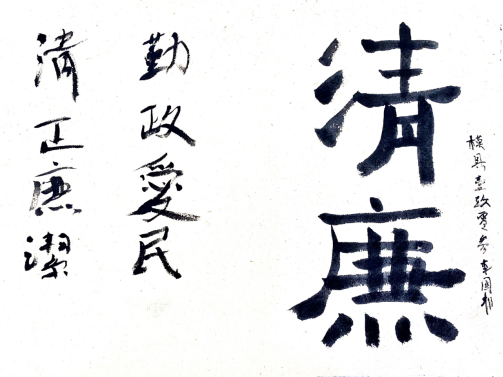 模具
清廉
勤政愛民
清正廉潔